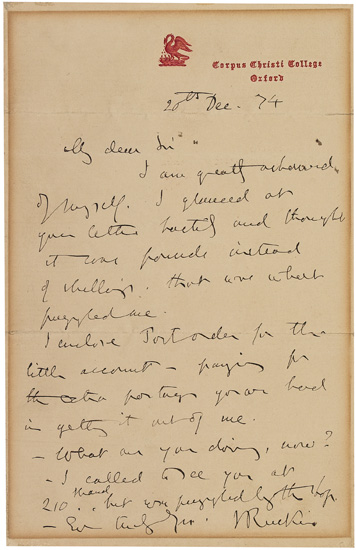 Corpus Christi College
Oxford
20th Dec. 74
My dear Sir
I am greatly ashamed
of myself. I glanced at
your letter hastily and thought
it was pounds instead
of shillings. that was what
puzzled me.
I enclose Post order for the
little account - paying for
the extra postage you are had
in getting it out of me.
- What are you doing, now?
- I called to see you at
210 Strand.. but was puzzled by the shop.
- Ever truly yrs. J Ruskin